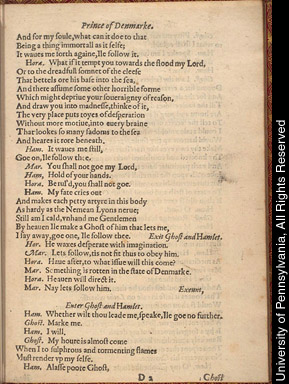 Prince of Denmarke.
And for my soule, what can it doe to that
Being a thing immortall as it selfe;
It waues me forth againe, Ile follow it.
Hora. What if it tempt you towards the flood my Lord,
Or to the dreadfull somnet of the cleefe
That bettels ore his base into the sea,
And there assume some other horrible forme
Which might depriue your soueraigntie of reason,
And draw you into madnesse, thinke of it,
The very place puts toyes of desperation
Without more motiue, into euery braine
That lookes so many fadoms to the sea
And heares it rore beneath.
Ham. It waues me still,
Goe on, Ile follow thee.
Mar. You shall not goe my Lord,
Ham. Hold of your hands.
Hora. Be rul'd, you shall not goe.
Ham. My fate cries out
And makes each petty artyre in this body
As hardy as the Nemean Lyons nerue;
Still am I cald, vnhand me Gentlemen
By heauen Ile make a Ghost of him that lets me,
I say away, goe one, Ile follow thee. Exit Ghost and Hamlet.
Hor. He waxes desperate with imagination.
Mar. Lets follow, tis not fit thus to obey him.
Hora. Haue after, to what issue will this come?
Mar. Something is rotten in the state of Denmarke.
Hora. Heauen will direct it.
Mar. Nay lets follow him. Exeunt,
Enter Ghost and Hamlet.
Ham. Whether wilt thou leade me, speake, Ile goe no further.
Ghost. Marke me.
Ham. I will,
Ghost. My houre is almost come
When I to sulphrous and tormenting flames
Must render vp my selfe.
Ham. Alasse poore Ghost,
D 2
Ghost
University of Pennsylvania, All Rights Reserved